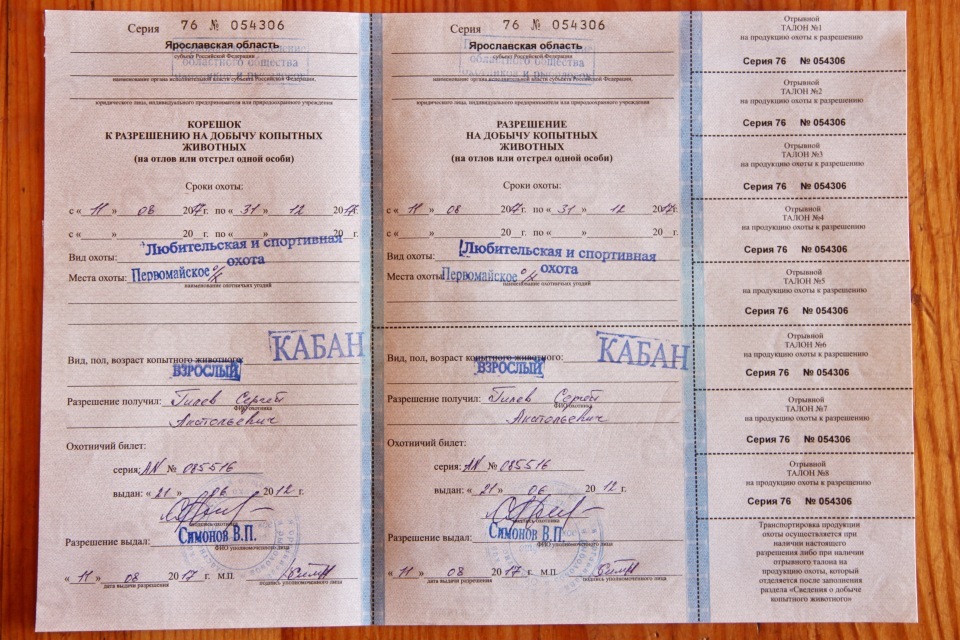 Серия 76 № 054306
Ярославская область
субъект Российской Федерации
областного общества
наименование органа исполнительной власти субъекта Российской Федерации,
юридического лица, индивидуального предпринимателя или природоохранного учреждения
КОРЕШОК
К РАЗРЕШЕНИЮ НА ДОБЫЧУ КОПЫТНЫХ
ЖИВОТНЫХ
(на отлов или отстрел одной особи)
Сроки охоты:
с « 11 » 08 2017 г. по « 31 » 12 2017 г.
с « » 20 г. по « » 20 г.
Вид охоты: Любительская и спортивная
охота
Места охоты: Первомайское о/х
наименование охотничьих угодий
Вид, пол, возраст копытного животного: КАБАН
ВЗРОСЛЫЙ
Разрешение получил: Гилев Сергей
ФИО охотника
Анатольевич
Охотничий билет:
серия: AN № 085516
выдан: « 21 » 06 2012 г.
подпись охотника
Разрешение выдал: Симонов В.П.
ФИО уполномоченного лица
« 11 » 08 2017 г. М.П.
дата выдачи разрешения подпись уполномоченного лица
Серия 76 № 054306
Ярославская область
субъект Российской Федерации
областного общества
наименование органа исполнительной власти субъекта Российской Федерации,
юридического лица, индивидуального предпринимателя или природоохранного учреждения
РАЗРЕШЕНИЕ
НА ДОБЫЧУ КОПЫТНЫХ
ЖИВОТНЫХ
(на отлов или отстрел одной особи)
Сроки охоты:
с « 11 » 08 2017 г. по « 31 » 12 2017 г.
с « » 20 г. по « » 20 г.
Вид охоты: Любительская и спортивная
охота
Места охоты: Первомайское о/х
наименование охотничьих угодий
Вид, пол, возраст копытного животного: КАБАН
ВЗРОСЛЫЙ
Разрешение получил: Гилев Сергей
ФИО охотника
Анатольевич
Охотничий билет:
серия: AN № 085516
выдан: « 21 » 06 2012 г.
подпись охотника
Разрешение выдал: Симонов В.П.
ФИО уполномоченного лица
« 11 » 08 2017 г. М.П.
дата выдачи разрешения подпись уполномоченного лица
Отрывной
ТАЛОН №1
на продукцию охоты к разрешению
Серия 76 № 054306
Отрывной
ТАЛОН №2
на продукцию охоты к разрешению
Серия 76 № 054306
Отрывной
ТАЛОН №3
на продукцию охоты к разрешению
Серия 76 № 054306
Отрывной
ТАЛОН №4
на продукцию охоты к разрешению
Серия 76 № 054306
Отрывной
ТАЛОН №5
на продукцию охоты к разрешению
Серия 76 № 054306
Отрывной
ТАЛОН №6
на продукцию охоты к разрешению
Серия 76 № 054306
Отрывной
ТАЛОН №7
на продукцию охоты к разрешению
Серия 76 № 054306
Отрывной
ТАЛОН №8
на продукцию охоты к разрешению
Серия 76 № 054306
Транспортировка продукции
охоты осуществляется при
наличии настоящего
разрешения либо при наличии
отрывного талона на
продукцию охоты, который
отделяется после заполнения
раздела «Сведения о добыче
копытного животного»